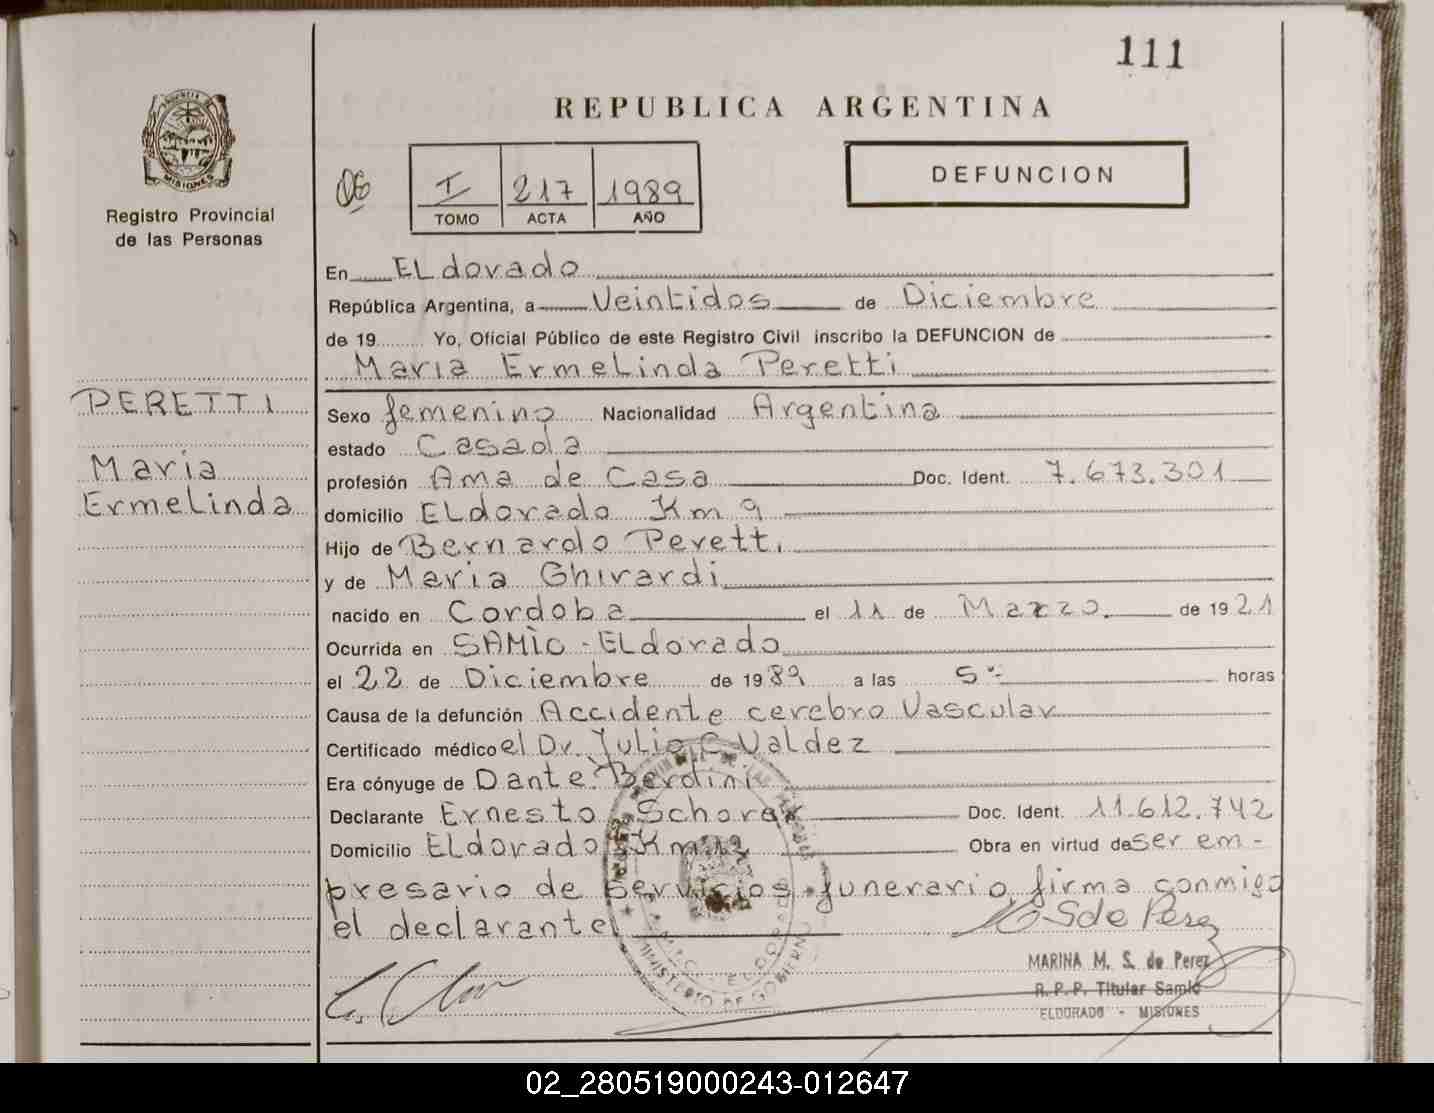 111
REPUBLICA ARGENTINA
DEFUNCION
MISIONES
Registro Provincial
de las Personas
06
I 217 1989
TOMO ACTA AÑO
En ELdorado
República Argentina, a Veintidos de Diciembre
de 19 Yo, Oficial Público de este Registro Civil inscribo la DEFUNCION de
Maria Ermelinda Peretti
PERETTI
Maria
Ermelinda
Sexo femenino Nacionalidad Argentina
estado Casada
profesión Ama de Casa Doc. Ident. 7.673.301
domicilio ELdorado Km 9
Hijo de Bernardo Peretti
y de Maria Ghirardi
nacido en Cordoba el 11 de Marzo de 1921
Ocurrida en SAMIC - ELdorado
el 22 de Diciembre de 1989 a las 5 horas
Causa de la defunción Accidente cerebro Vascular
Certificado médico el Dr. Julio C. Valdez
Era cónyuge de Dante Berdini
Declarante Ernesto Doc. Ident. 11.612.742
Domicilio ELdorado Km 12 Obra en virtud de ser em-
presario de Servicios funerario firma conmigo
el declarante
S de Perez
MARINA M. S. de Perez
R. P. P. Titular Samic
ELDORADO - MISIONES
MINISTERIO DE GOBIERNO
02_280519000243-012647